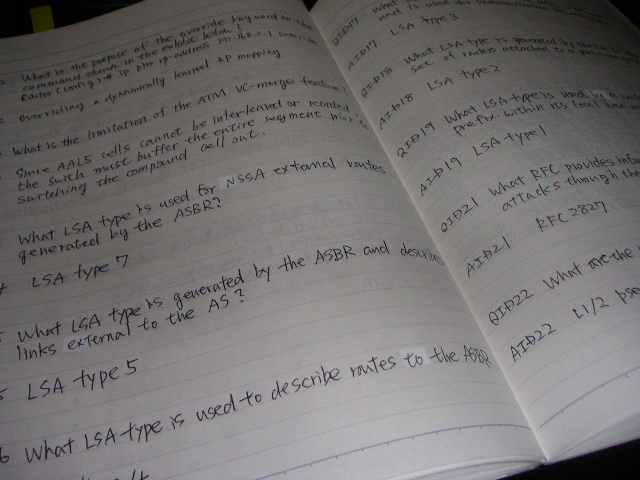 What is the purpose of the override keyword in the
command shown in the exhibit below?
Router (config)# ip pim rp-address override
Overriding a dynamically learned RP mapping
What is the limitation of the ATM VC-merge feature?
Since AAL5 cells cannot be interleaved or
the switch must buffer the entire segment prior
switching the compound cell out.
What LSA type is used for NSSA external routes
generated by the ASBR?
LSA type 7
What LSA type is generated by the ASBR and describe
links external to the AS?
LSA type 5
6 What LSA type is used to describe routes to the ASBR
QID17 What
and is used for
AID17 LSA type 3
QID18 What LSA type is generated by
set of routers attached to a
AID18 LSA type 2
QID19 What LSA type is used
prefix within its local area
AID19 LSA type 1
QID21 What RFC provides
attacks through the
AID21 RFC 2827
QID22 What are the
AID22 L1/2